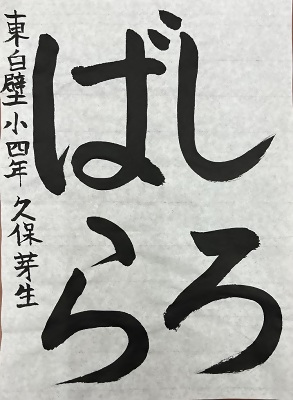 しろ
ばら
東白壁小四年 久保芽生